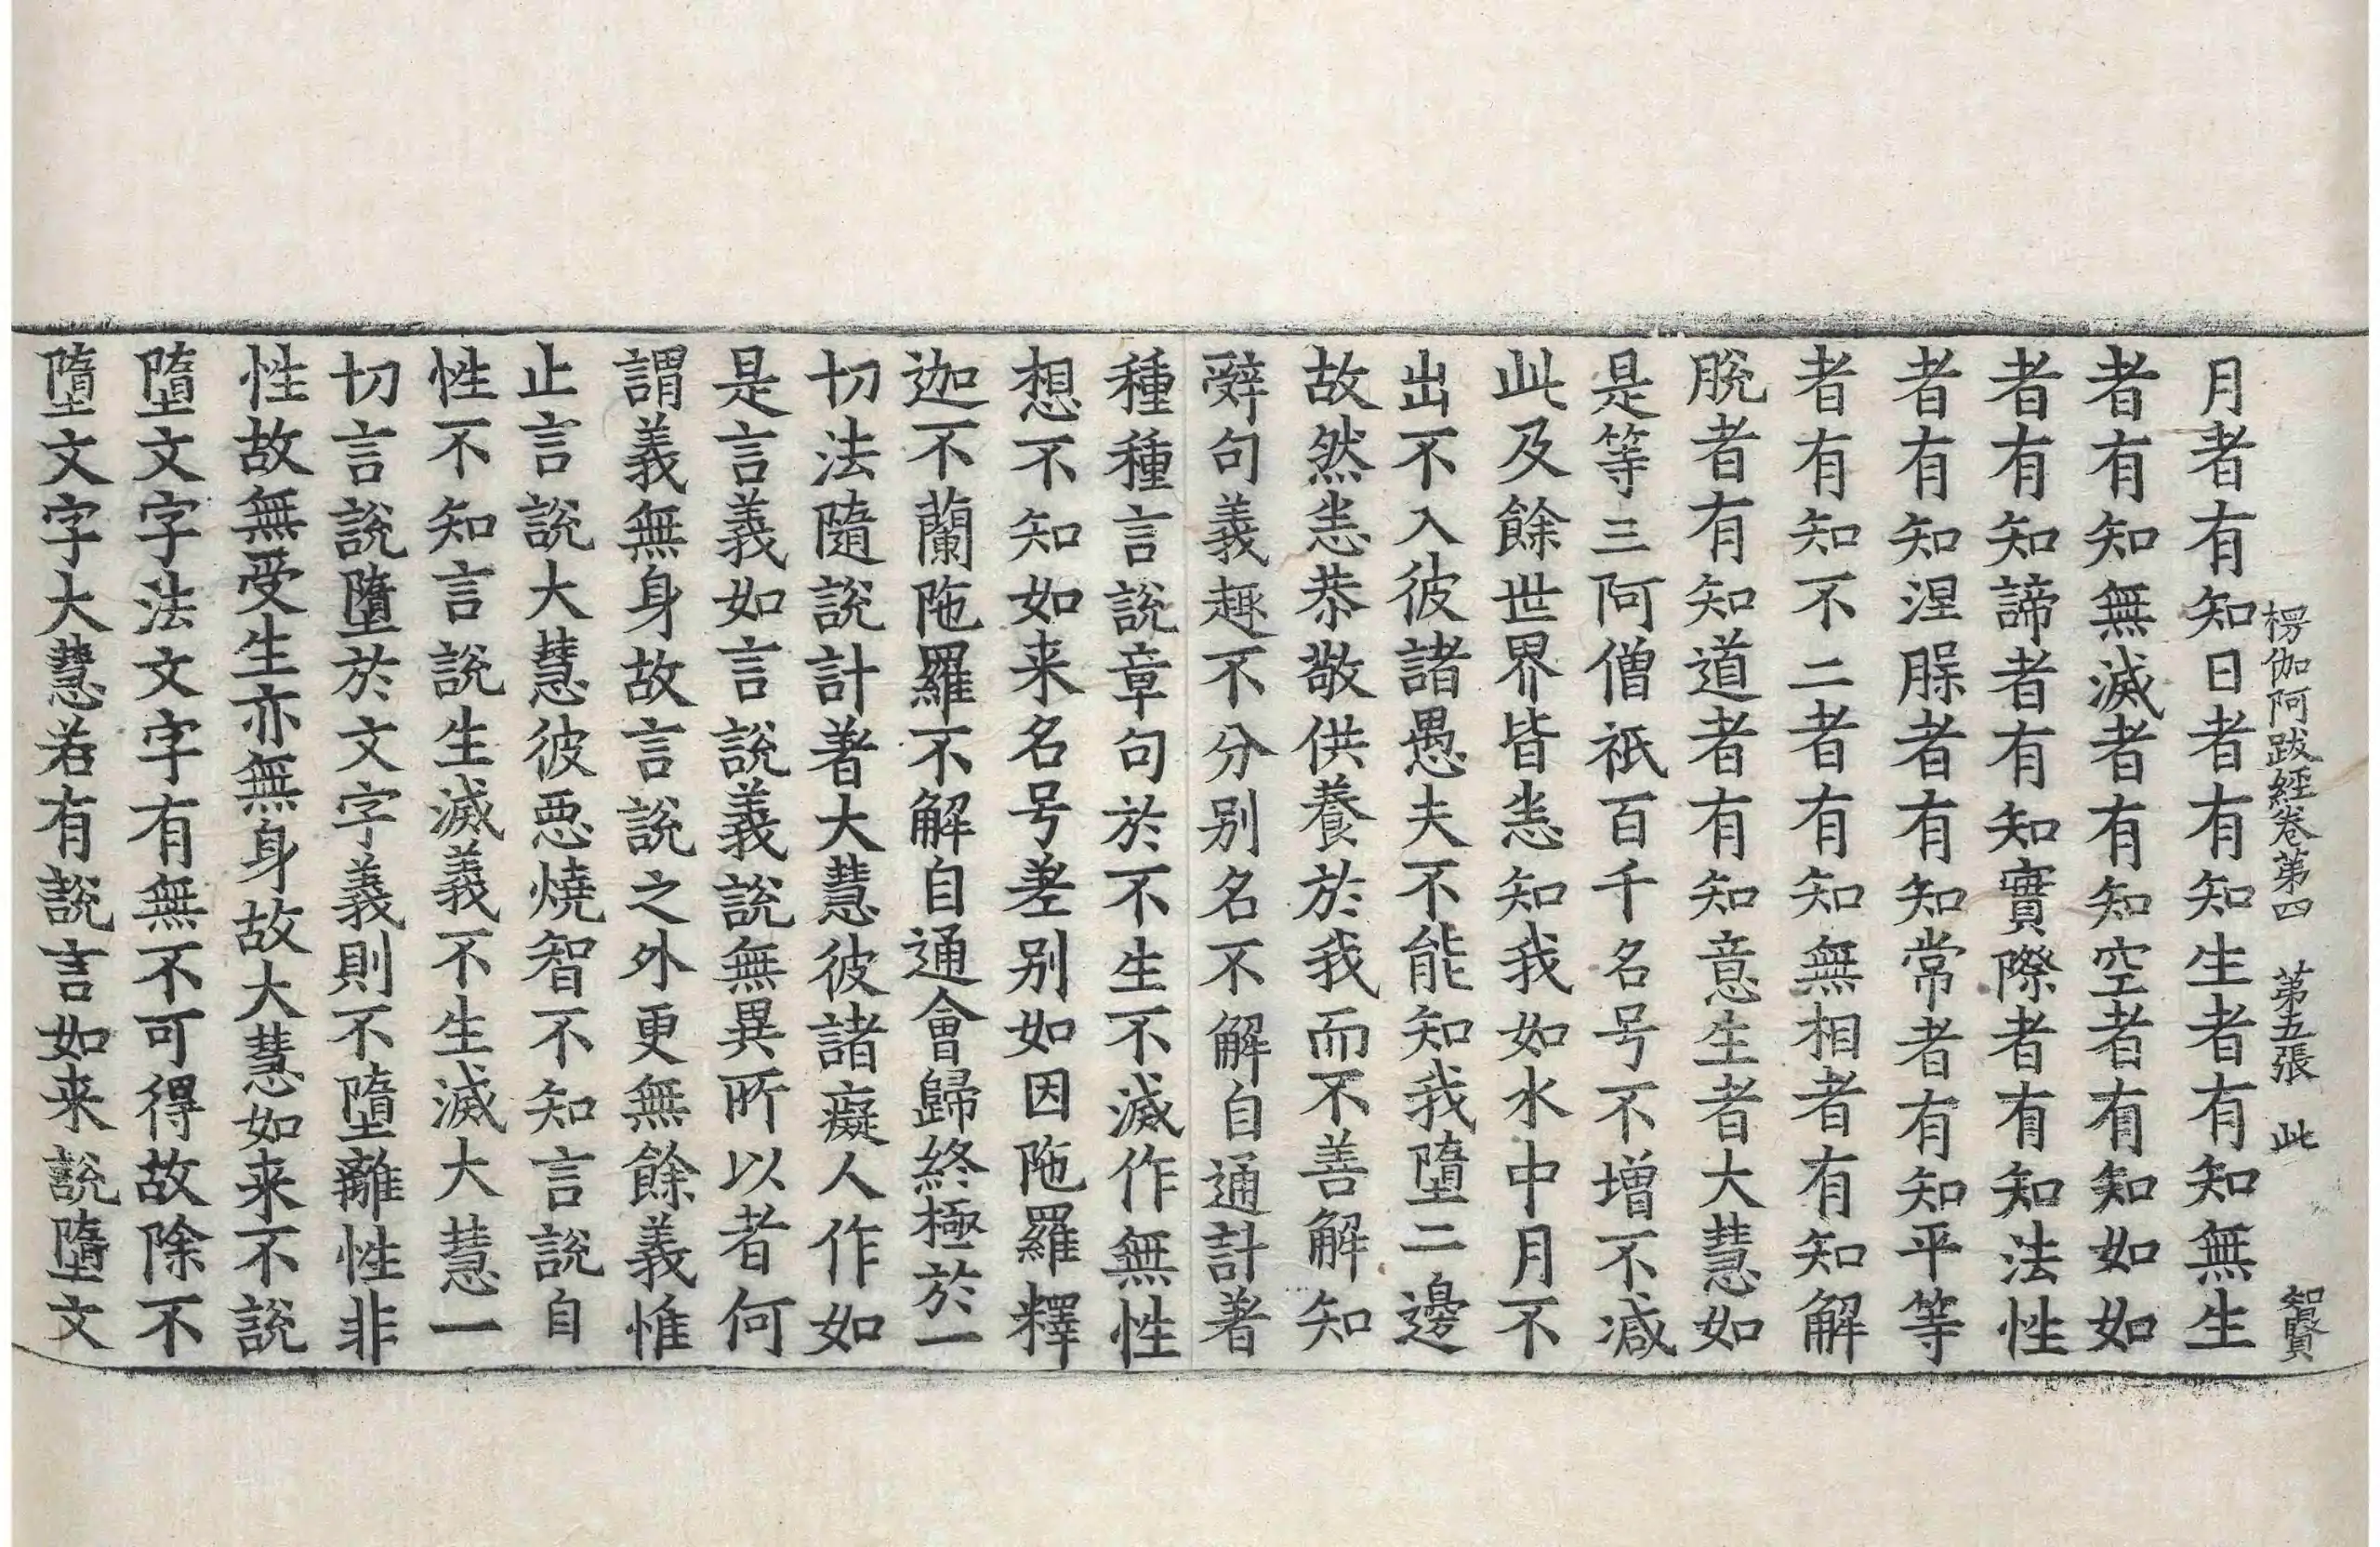 楞伽阿跋經卷第四　第五張　此　智賢
月者有知日者有知生者有知無生
者有知無滅者有知空者有知如如
者有知諦者有知實際者有知法性
者有知涅槃者有知常者有知平等
者有知不二者有知無相者有知解
脫者有知道者有知意生者大慧如
是等三阿僧祇百千名号不增不減
此及餘世界皆悉知我如水中月不
出不入彼諸愚夫不能知我墮二邊
故然恙恭敬供養於我而不善解知
辭句義趣不分別名不解自通計著
種種言說章句於不生不滅作無性
想不知如来名号差别如因陁羅釋
迦不蘭陁羅不解自通會歸終極於一
切法隨說計著大慧彼諸癡人作如
是言義如言說義說無異所以者何
謂義無身故言說之外更無餘義惟
止言說大慧彼惡燒智不知言說自
性不知言說生滅義不生滅大慧一
切言說墮於文字義則不墮離性非
性故無受生亦無身故大慧如来不說
墮文字法文字有無不可得故除不
墮文字大慧若有說言如来說墮文